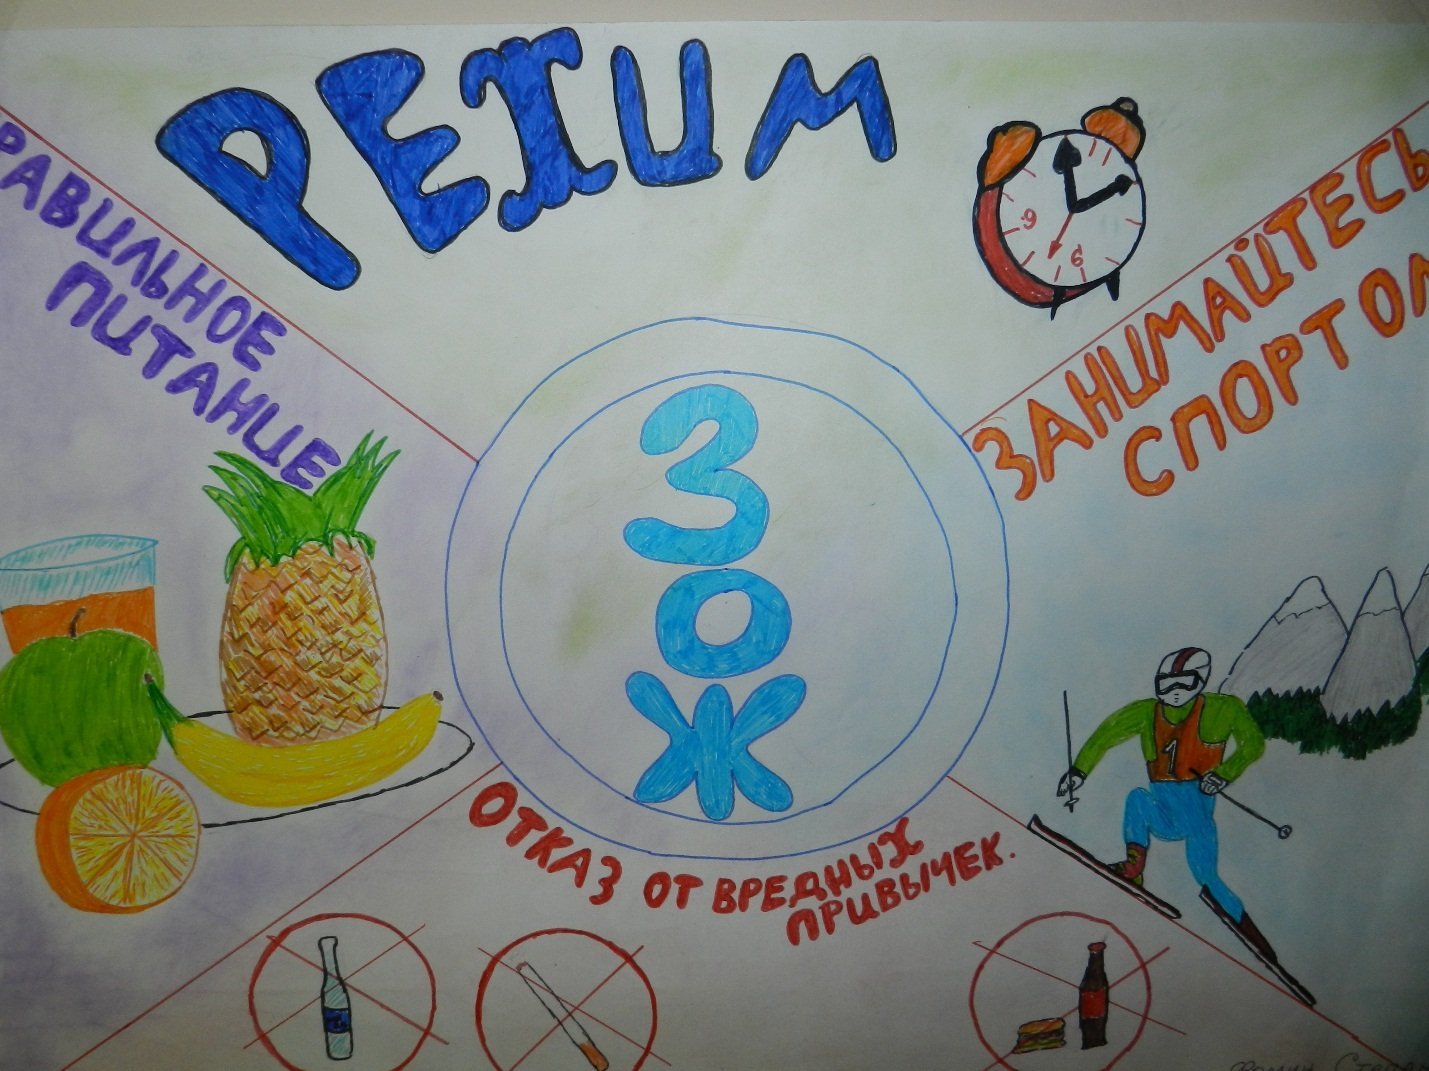 РЕЖИМ
РАВИЛЬНОЕ
ПИТАНИЕ
ЗАНИМАЙТЕСЬ
СПОРТОМ
6
9
ЗОЖ
1
ОТКАЗ ОТ ВРЕДНЫХ
ПРИВЫЧЕК.